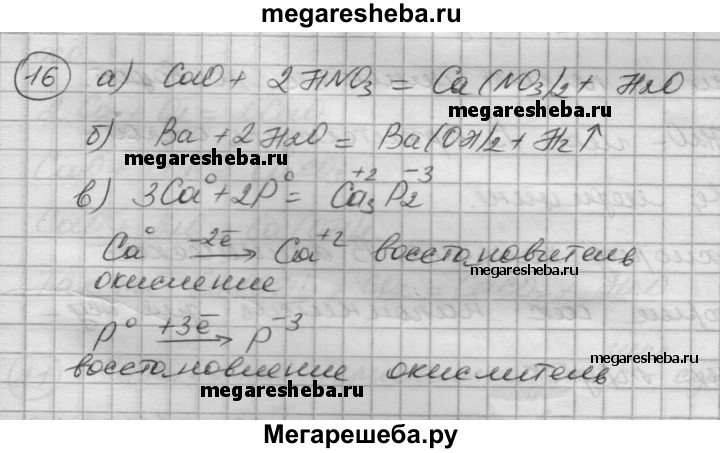 megaresheba.ru
16 а) CaO + 2HNO3 = Ca(NO3)2 + H2O
megaresheba.ru
б) Ba + 2H2O = Ba(OH)2 + H2↑
megaresheba.ru
в) 3Ca⁰ + 2P⁰ = Ca3⁺² P2⁻³
Ca⁰ –2ē → Ca⁺² восстановитель
окисление
megaresheba.ru
P⁰ +3ē → P⁻³
megaresheba.ru
восстановление окислитель
megaresheba.ru
Мегарешеба.ру